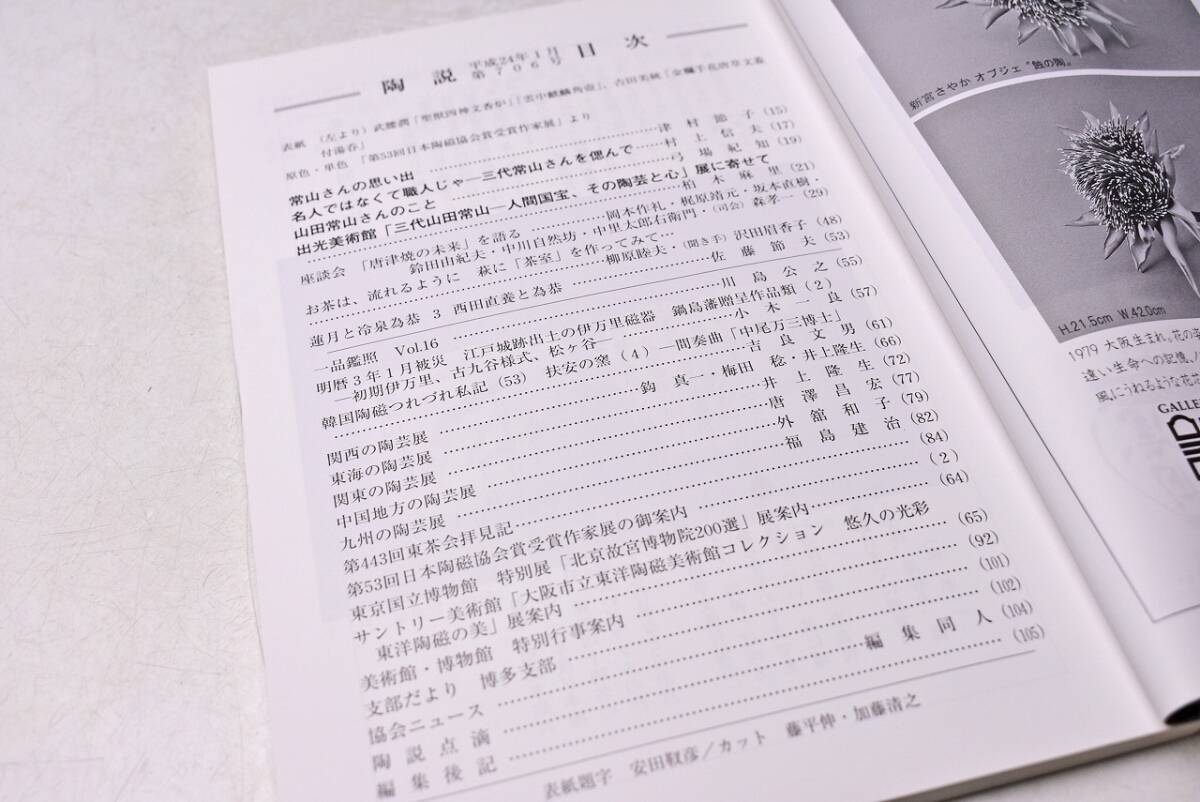 陶説 平成24年1月 第706号 目次
表紙 (左より) 武腰潤「聖獣四神文香炉」「雲中麒麟角壺」、吉田美統「金襴手花唐草文蓋
付湯呑」
原色・単色 「第53回日本陶磁協会賞受賞作家展」より
常山さんの思い出 津村節子 (15)
名人ではなくて職人じゃ―三代常山さんを偲んで 村上信夫 (17)
山田常山さんのこと 弓場紀知 (19)
出光美術館「三代山田常山―人間国宝、その陶芸と心」展に寄せて
柏木麻里 (21)
座談会 「唐津焼の未来」を語る 岡本作礼・梶原靖元・坂本直樹・
鈴田由紀夫・中川自然坊・中里太郎右衛門・(司会) 森孝一 (29)
お茶は、流れるように 萩に「茶室」を作ってみて…
柳原睦夫・(聞き手) 沢田眉香子 (48)
蓮月と冷泉為恭 3 西田直養と為恭 佐藤節夫 (53)
一品鑑照 Vol.16 川島公之 (55)
明暦3年1月被災 江戸城跡出土の伊万里磁器 鍋島藩贈呈作品類 (2)
―初期伊万里、古九谷様式、松ヶ谷― 小木一良 (57)
韓国陶磁つれづれ私記 (53) 扶安の窯 (4) ―間奏曲「中尾万三博士」
吉良文男 (61)
関西の陶芸展 鈎真一・梅田稔・井上隆生 (66)
東海の陶芸展 井上隆生 (72)
関東の陶芸展 唐澤昌宏 (77)
中国地方の陶芸展 外舘和子 (79)
九州の陶芸展 福島建治 (82)
第443回東茶会拝見記 (84)
第53回日本陶磁協会賞受賞作家展の御案内 (2)
東京国立博物館 特別展「北京故宮博物院200選」展案内 (64)
サントリー美術館「大阪市立東洋陶磁美術館コレクション 悠久の光彩
東洋陶磁の美」展案内 (65)
美術館・博物館 特別行事案内 (92)
支部だより 博多支部 (101)
協会ニュース (102)
陶説点滴 編集同人 (104)
編集後記 (105)
表紙題字 安田靫彦/カット 藤平伸・加藤清之
新宮さやか オブジェ "蝕の陶"
H.21.5cm W.42.0cm
1979 大阪生まれ。花の
遠い生命への記憶。
風にうれるような花
GALLE